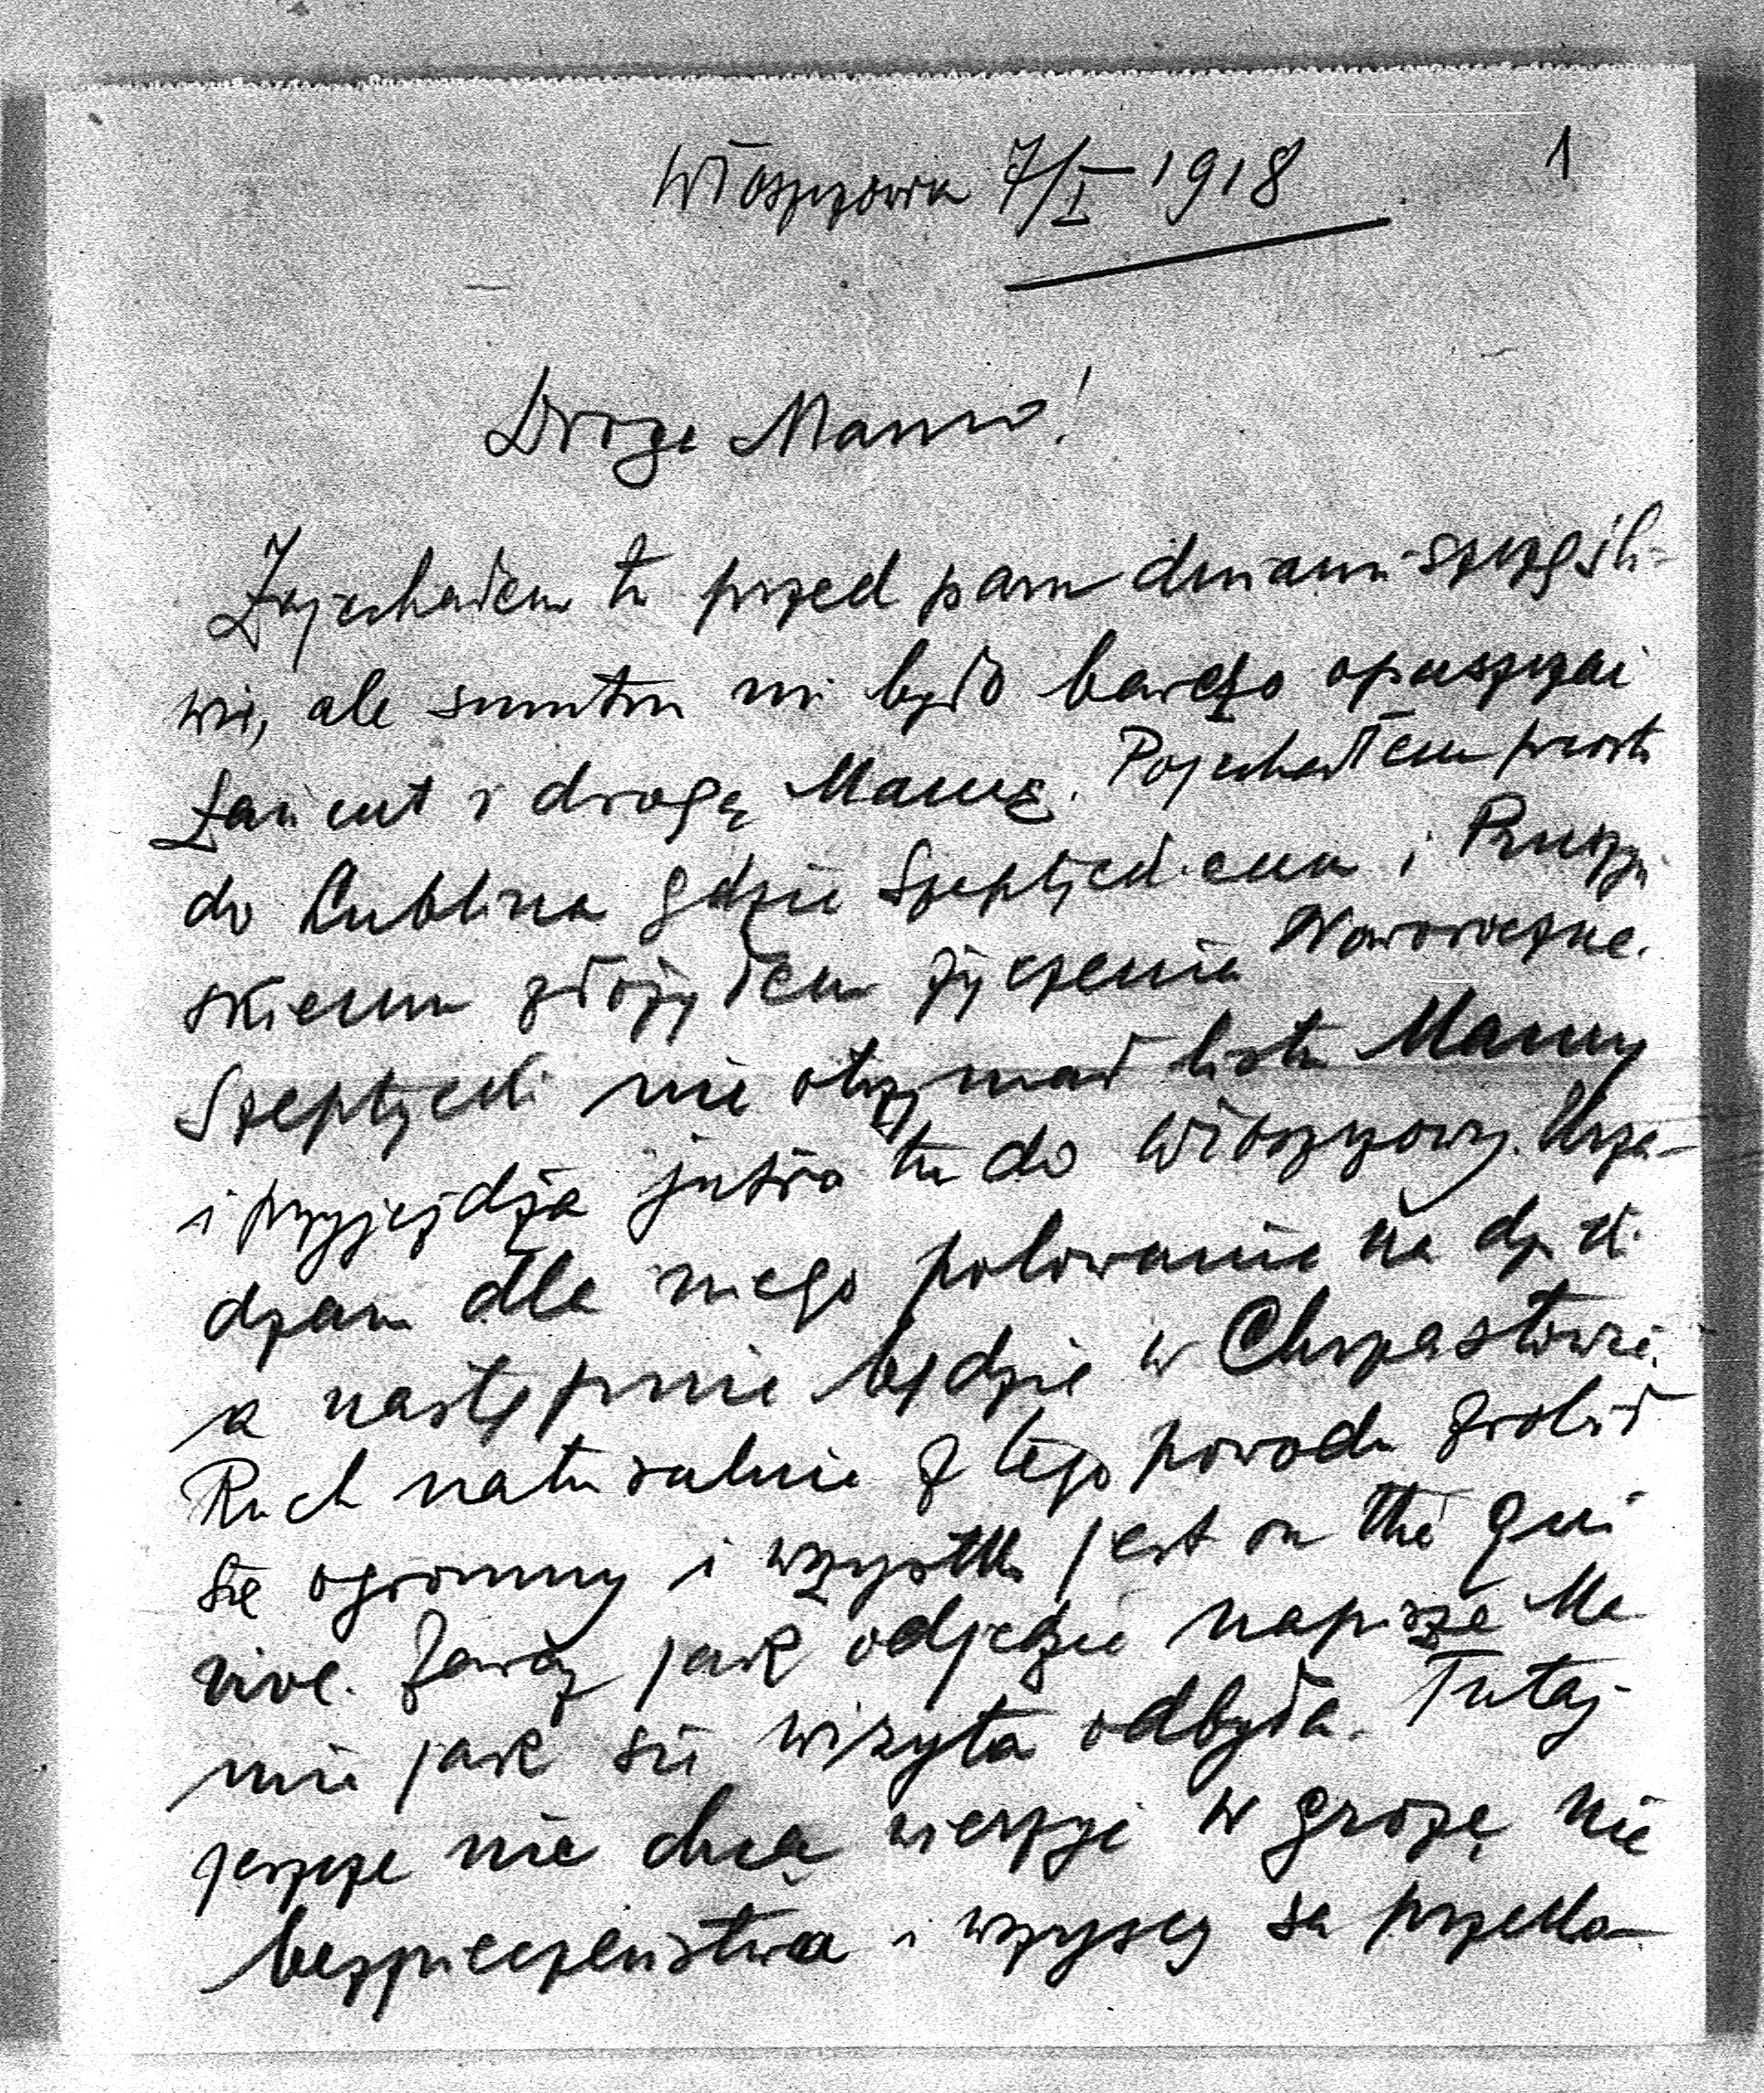 Włoszczowa 7/I 1918 1
Droga Mamo!
Zajechałem tu przed paru dniami szczęśli-
wie, ale smutno mi było bardzo opuszczać
Łańcut i drogą Mamę. Pojechałem prosto
do Lublina gdzie Szeptyckiemu i Pruszyń
skiemu złożyłem życzenia Noworoczne.
Szeptycki nie otrzymał listu Mamy
i przyjeżdża jutro tu do Włoszczowy. Urzą-
dzam dla niego polowanie na dziki
a następnie będzie w Chrząstowie.
Ruch naturalnie z tego powodu zrobił
się ogromny i wszystko jest on the qui
vive. Zaraz jak odjedzie napiszę Ma
mie jak się wizyta odbyła. Tutaj
jeszcze nie chcą wierzyć w grozę nie
bezpieczeństwa i wszyscy są przeko-